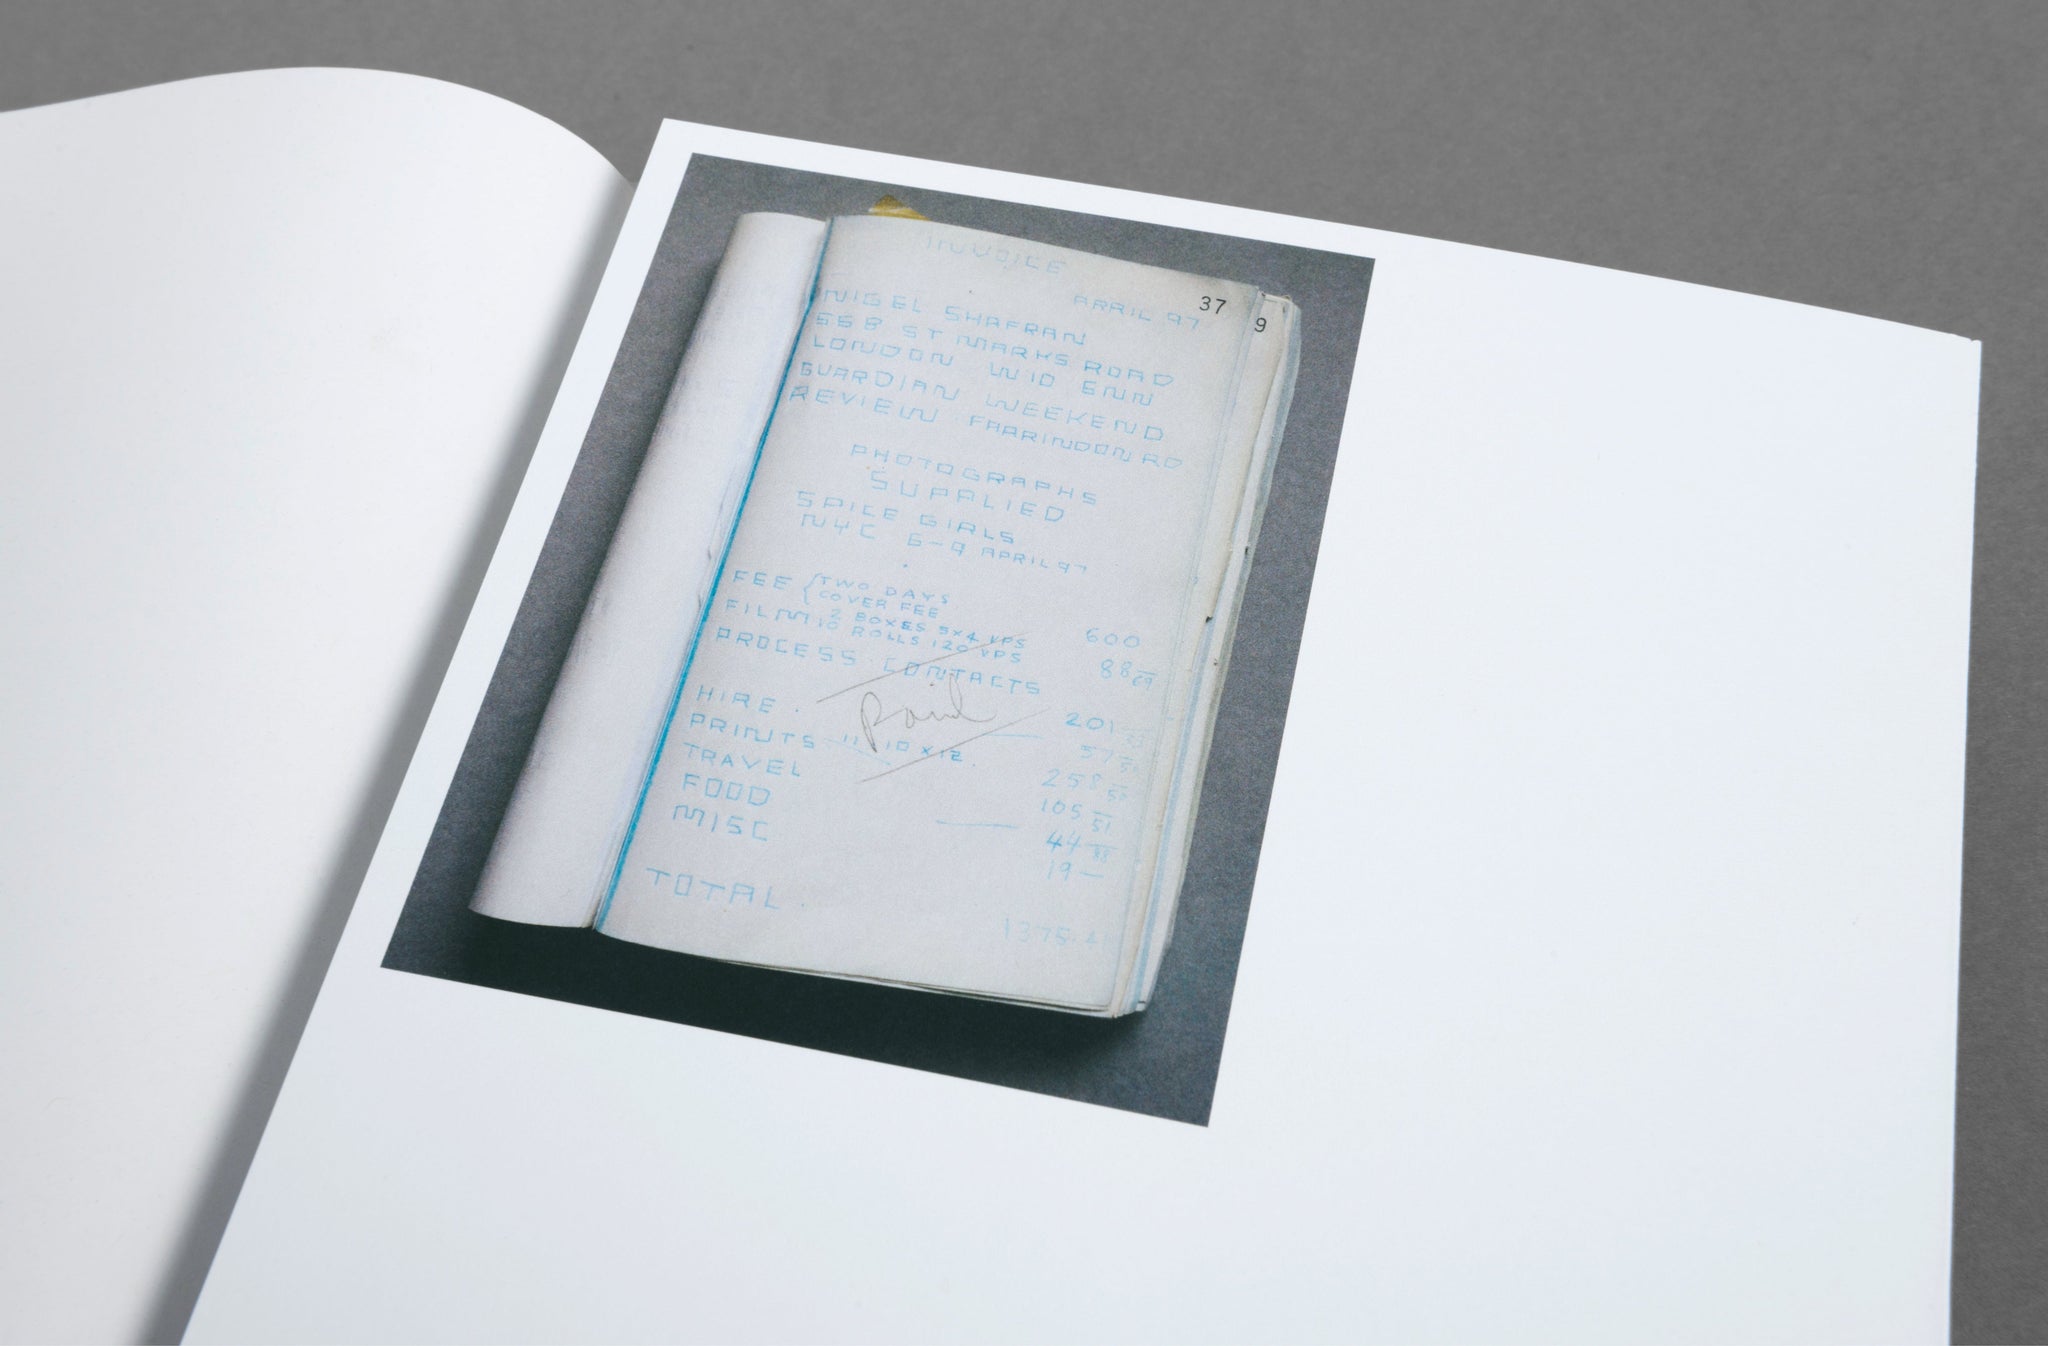 INVOICE
APRIL 97 37
9
NIGEL SHAFRAN
55B ST MARKS ROAD
LONDON W10 6NN
GUARDIAN WEEKEND
REVIEW FARRINDON RD
PHOTOGRAPHS
SUPPLIED
SPICE GIRLS
NYC 6-9 APRIL 97
FEE { TWO DAYS
COVER FEE 600
FILM 2 BOXES 5x4 VPS
10 ROLLS 120 VPS 88 69
PROCESS CONTACTS 201
Paid
HIRE. 57
PRINTS 11 10 x 12. 258 50
TRAVEL 105 51
FOOD 44 88
MISC 19 —
TOTAL.